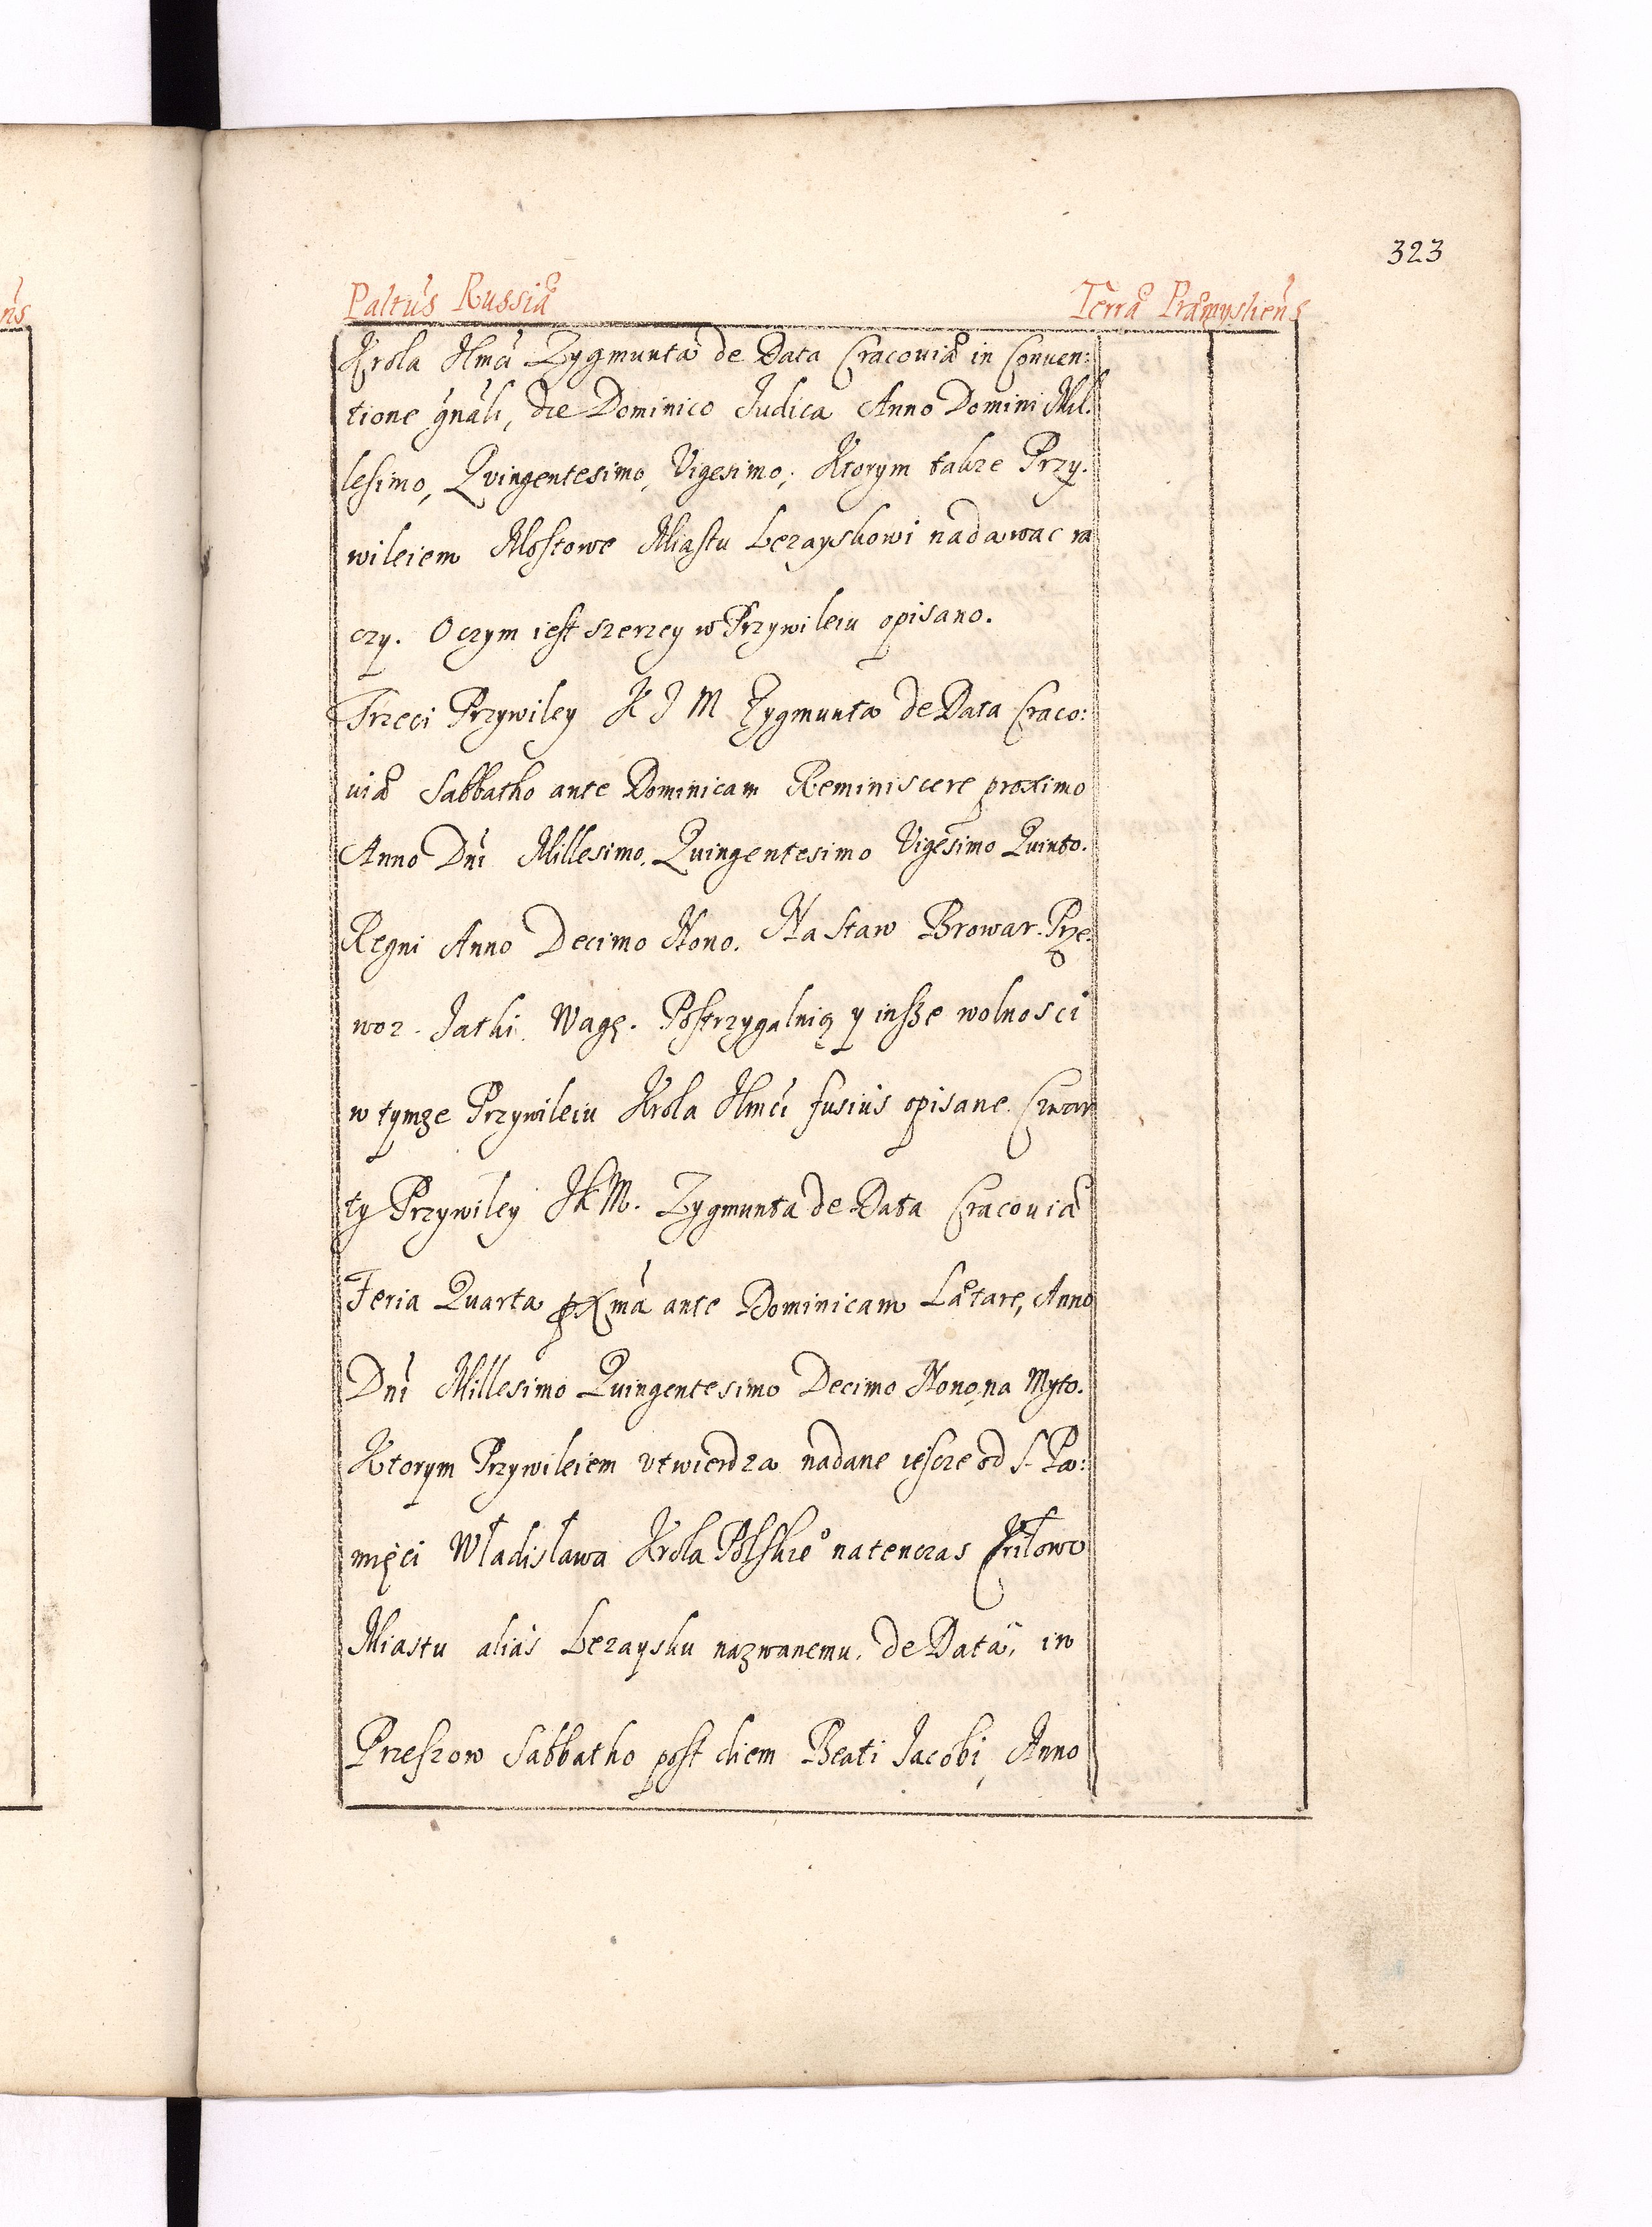 323
Paltus Russiæ Terræ Præmysliens
Krola Jlmci Zygmunta de Data Cracouiæ in Conuen:
tione gnali, die Dominico Judica Anno Domini Mil:
lesimo, Qvingentesimo, Vigesimo, Ktorym takze Przy:
wileiem Mostowe Miastu Lezayskowi nadawac ra
czy. O czym iest szerzey w Przywileiu opisano.
Trzeci Przywiley K J M Zygmunta de Data Craco:
uiæ Sabbatho ante Dominicam Reminiscere proximo
Anno Dni Millesimo, Quingentesimo Vigesimo Quinto.
Regni Anno Decimo Nono. Na Staw Browar. Prze:
woz. Jatki. Wagę. Postrzygalnią y insze wolnosci
w tymze Przywileiu Krola Jlmci fusius opisane. Czwar
ty Przywiley JKM. Zygmunta de Data Cracouiæ
Feria Quarta pxma ante Dominicam Lætare, Anno
Dni Millesimo Quingentesimo Decimo Nono, na Myto.
Ktorym Przywileiem vtwierdza nadane iescze od S. Pa:
mięci Władisława Krola Polskie° natenczas
Miastu alias Lezaysku nazwanemu, de Data, in
Przeszow Sabbatho post diem Beati Jacobi, Anno